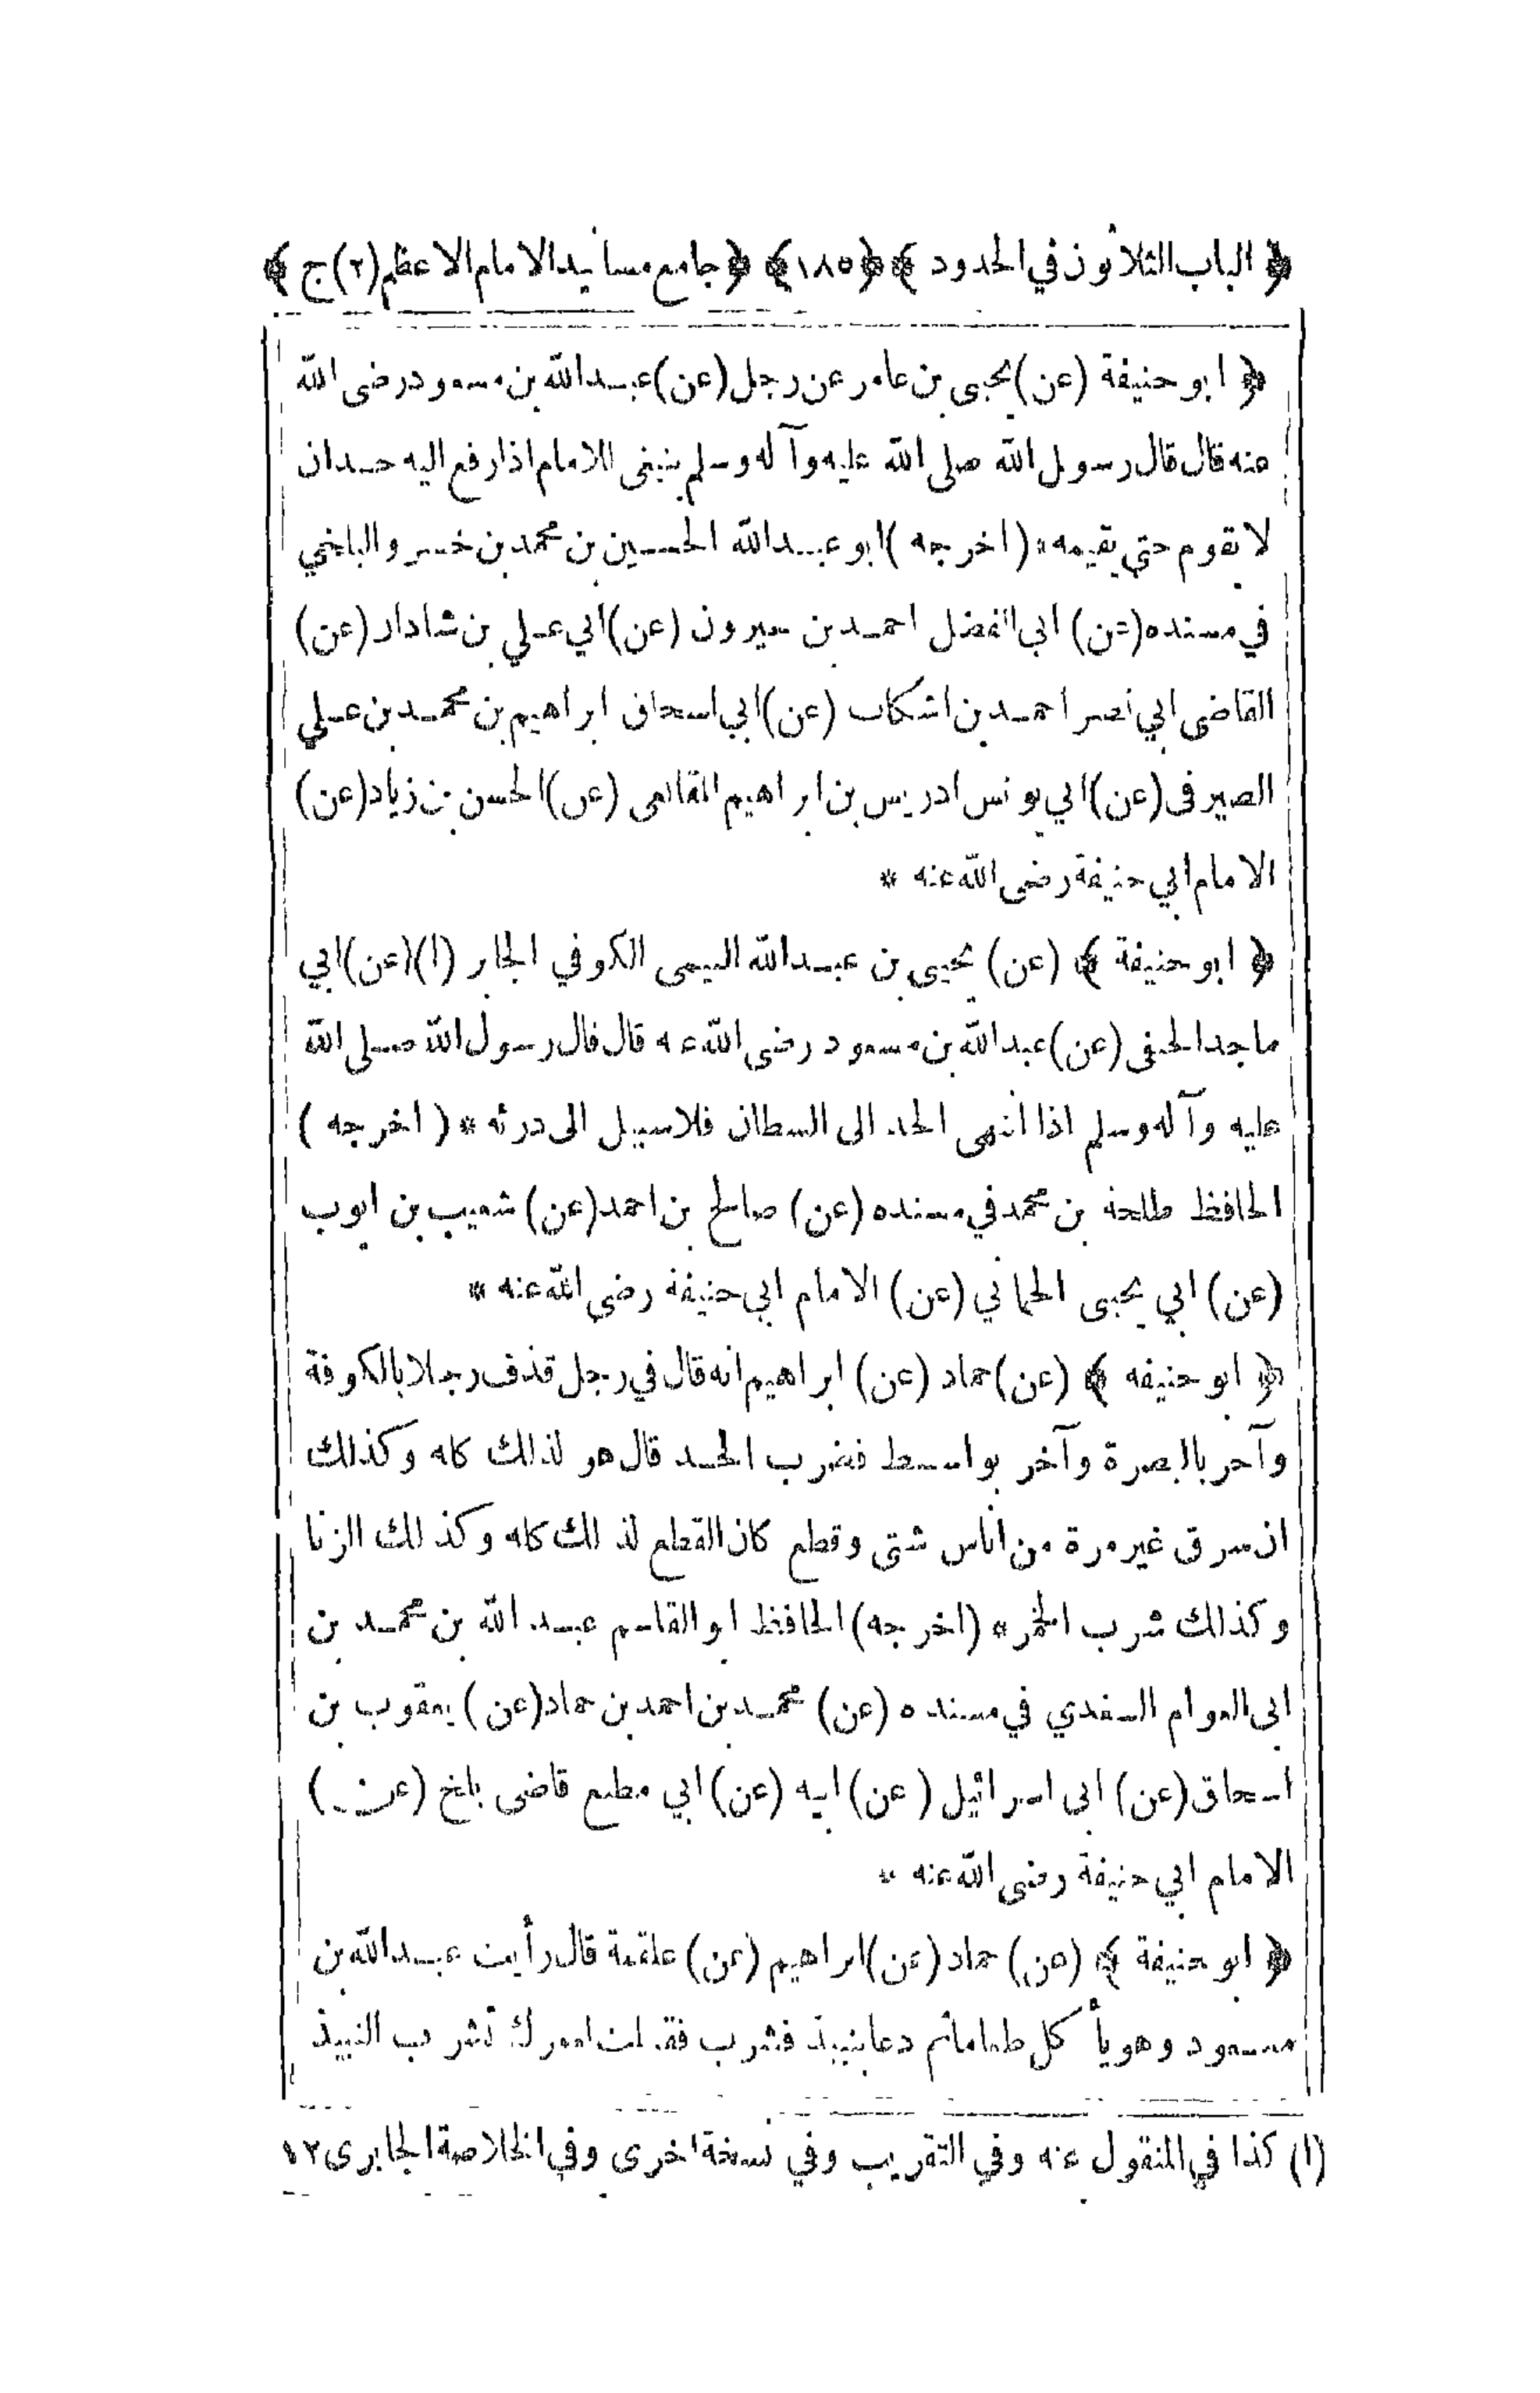 ﴿ الباب الثلاثون في الحدود ﴾ ﴿١٨٥﴾ ﴿ جامع مسانيد الامام الاعظم (٢) ج ﴾
﴿ ابو حنيفة (عن) يحيى بن عامر عن رجل (عن) عبد الله بن مسعود رضى الله
عنه قال قال رسول الله صلى الله عليه وآله وسلم ينبغى للامام اذا رفع اليه حد ان
لا يقوم حتى يقيمه * ( اخرجه ) ابو عبد الله الحسين بن محمد بن خسرو البلخي
في مسنده (عن) ابى الفضل احمد بن خيرون (عن) ابي علي بن شاذان (عن)
القاضى ابي نصر احمد بن اشكاب (عن) ابي اسحاق ابراهيم بن محمد بن علي
الصيرفى (عن) ابي يونس ادريس بن ابراهيم المقانعى (عن) الحسن بن زياد (عن)
الامام ابي حنيفة رضى الله عنه *
﴿ ابو حنيفة ﴾ (عن) يحيى بن عبد الله التيمى الكوفي الجابر (١) (عن) ابي
ماجد الحنفى (عن) عبد الله بن مسعود رضى الله عنه قال قال رسول الله صلى الله
عليه وآله وسلم اذا انتهى الحد الى السطان فلا سبيل الى درئه * ( اخرجه )
الحافظ طلحة بن محمد في مسنده (عن) صالح بن احمد (عن) شعيب بن ايوب
(عن) ابي يحيى الحماني (عن) الامام ابي حنيفة رضى الله عنه *
﴿ ابو حنيفه ﴾ (عن) حماد (عن) ابراهيم انه قال في رجل قذف رجلا بالكوفة
وآخر بالبصرة وآخر بواسط فضرب الحد قال هو لذلك كله وكذلك
ان سرق غير مرة من اناس شتى وقطع كان القطع لذلك كله وكذلك الزنا
وكذلك شرب الخمر * (اخرجه) الحافظ ابو القاسم عبد الله بن محمد بن
ابى العوام السغدي في مسنده (عن) محمد بن احمد بن حماد (عن) يعقوب بن
اسحاق (عن) ابى اسرائيل (عن) ابيه (عن) ابي مطيع قاضى بلخ (عن)
الامام ابي حنيفة رضى الله عنه *
﴿ ابو حنيفة ﴾ (عن) حماد (عن) ابراهيم (عن) علقمة قال رأيت عبد الله بن
مسعود وهو يأكل طعاما ثم دعا بنبيذ فشرب فقلت لعمرك تشرب النبيذ
(١) كذا في المنقول عنه وفي التقريب وفي نسخة اخرى وفي الخلاصة الجابرى ١٢